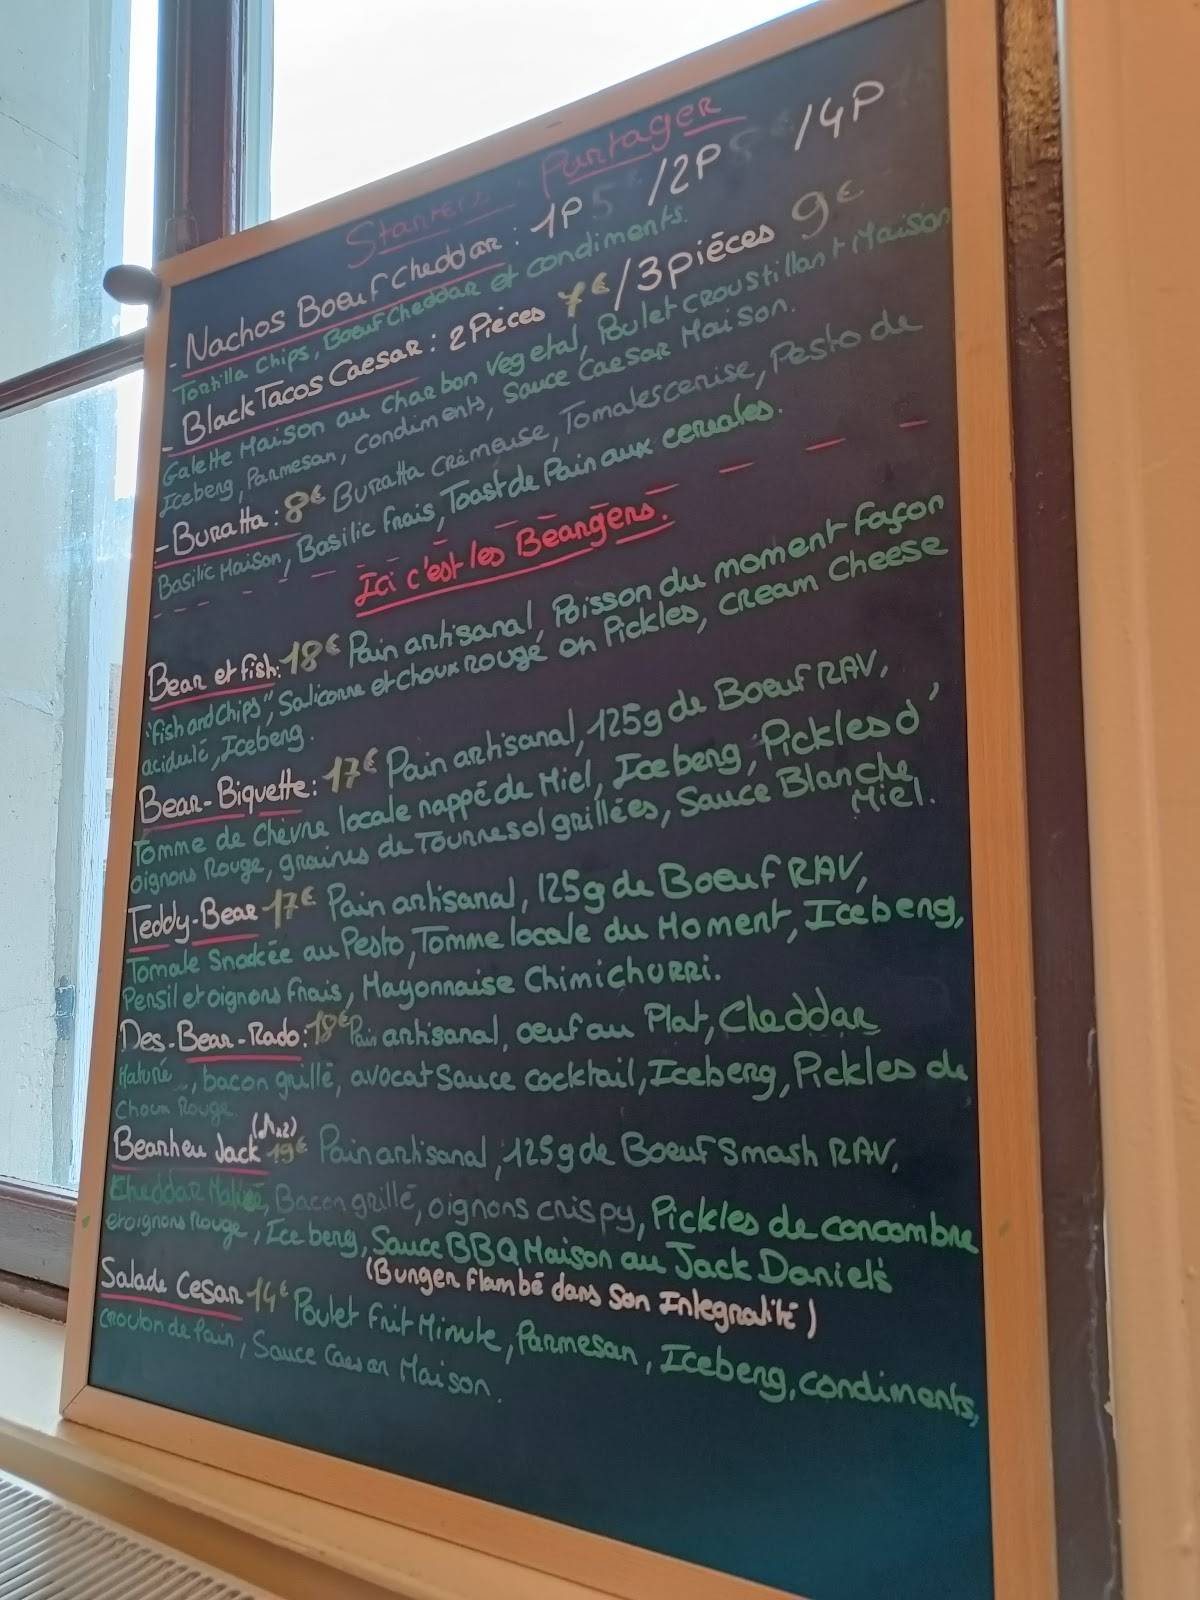 Starters Partager
- Nachos Boeuf Cheddar : 1P 5€ /2P /4P
Tortilla Chips, Boeuf Cheddar et condiments.
- Black Tacos Caesar : 2 Pièces 7€ / 3 pièces 9€
Galette Maison au Charbon Vegetal, Poulet croustillant Maison
Iceberg, Parmesan, condiments, Sauce Caesar Maison.
- Buratta : 8€ Buratta Crémeuse, Tomates cerise, Pesto de
Basilic Maison, Basilic frais, Toast de Pain aux cereales.
Ici c'est les Beargers.
Bear et fish : 18€ Pain artisanal, Poisson du moment façon
"fish and chips", Salicorne et Choux Rouge en Pickles, cream cheese
acidulé, Iceberg.
Bear-Biquette : 17€ Pain artisanal, 125g de Boeuf RAV,
Tomme de Chèvre locale nappé de Miel, Iceberg, Pickles d'
oignons Rouge, graines de Tournesol grillées, Sauce Blanche
Miel.
Teddy-Bear 17€ Pain artisanal, 125g de Boeuf RAV,
Tomate Snackée au Pesto, Tomme locale du Moment, Iceberg,
Persil et oignons frais, Mayonnaise Chimichurri.
Des-Bear-Rado : 18€ Pain artisanal, oeuf au Plat, Cheddar
Mature, bacon grillé, avocat Sauce cocktail, Iceberg, Pickles de
Choux Rouge.
Bearheu Jack 19€ Pain artisanal, 125g de Boeuf Smash RAV,
Cheddar, Bacon grillé, oignons crispy, Pickles de concombre
et oignons Rouge, Iceberg, Sauce BBQ Maison au Jack Daniel's
(Burger flambé dans Son Intégralité)
Salade Cesar 14€ Poulet frit Minute, Parmesan, Iceberg, condiments,
crouton de Pain, Sauce Caesar Maison.